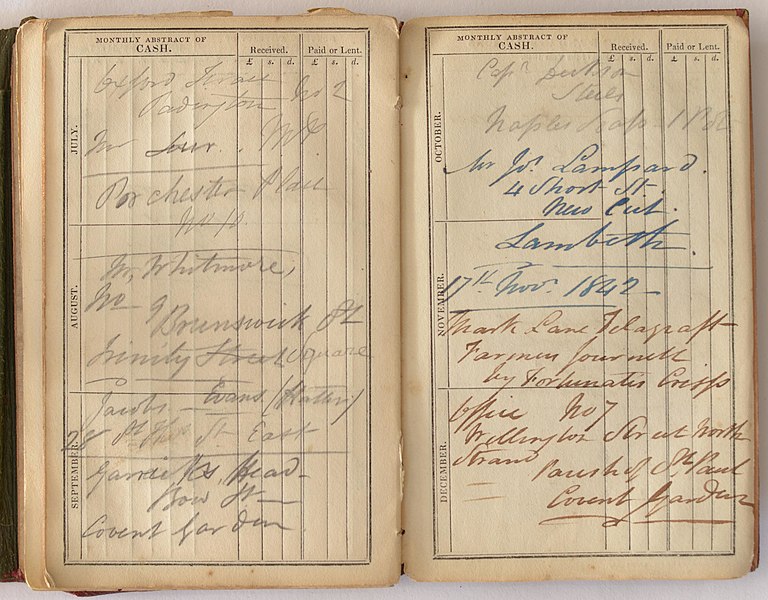 MONTHLY ABSTRACT OF
CASH.
Received.
Paid or Lent.
£ s. d. £ s. d.
JULY.
Oxford Terrace
Padington No 2
Mr
Porchester Place
No 10
AUGUST.
Mr Whitmore,
No 9
Brunswick St
Trinity Street Square
SEPTEMBER.
Jacobs — Evans (Hatter)
28 St East
Garricks Head
Bow St
Covent Garden
MONTHLY ABSTRACT OF
CASH.
Received.
Paid or Lent.
£ s. d. £ s. d.
OCTOBER.
Capn
Naples Soap
Mr Jos. Lampard.
4 Short St.
New Cut.
Lambeth.
NOVEMBER.
17th Novr. 1842
Mark Lane Telagraft
Farmers Journell
by Fortunatus Crisps
DECEMBER.
Office No 7
Wellington Street North
Strand
Parish of St Paul
Covent Garden